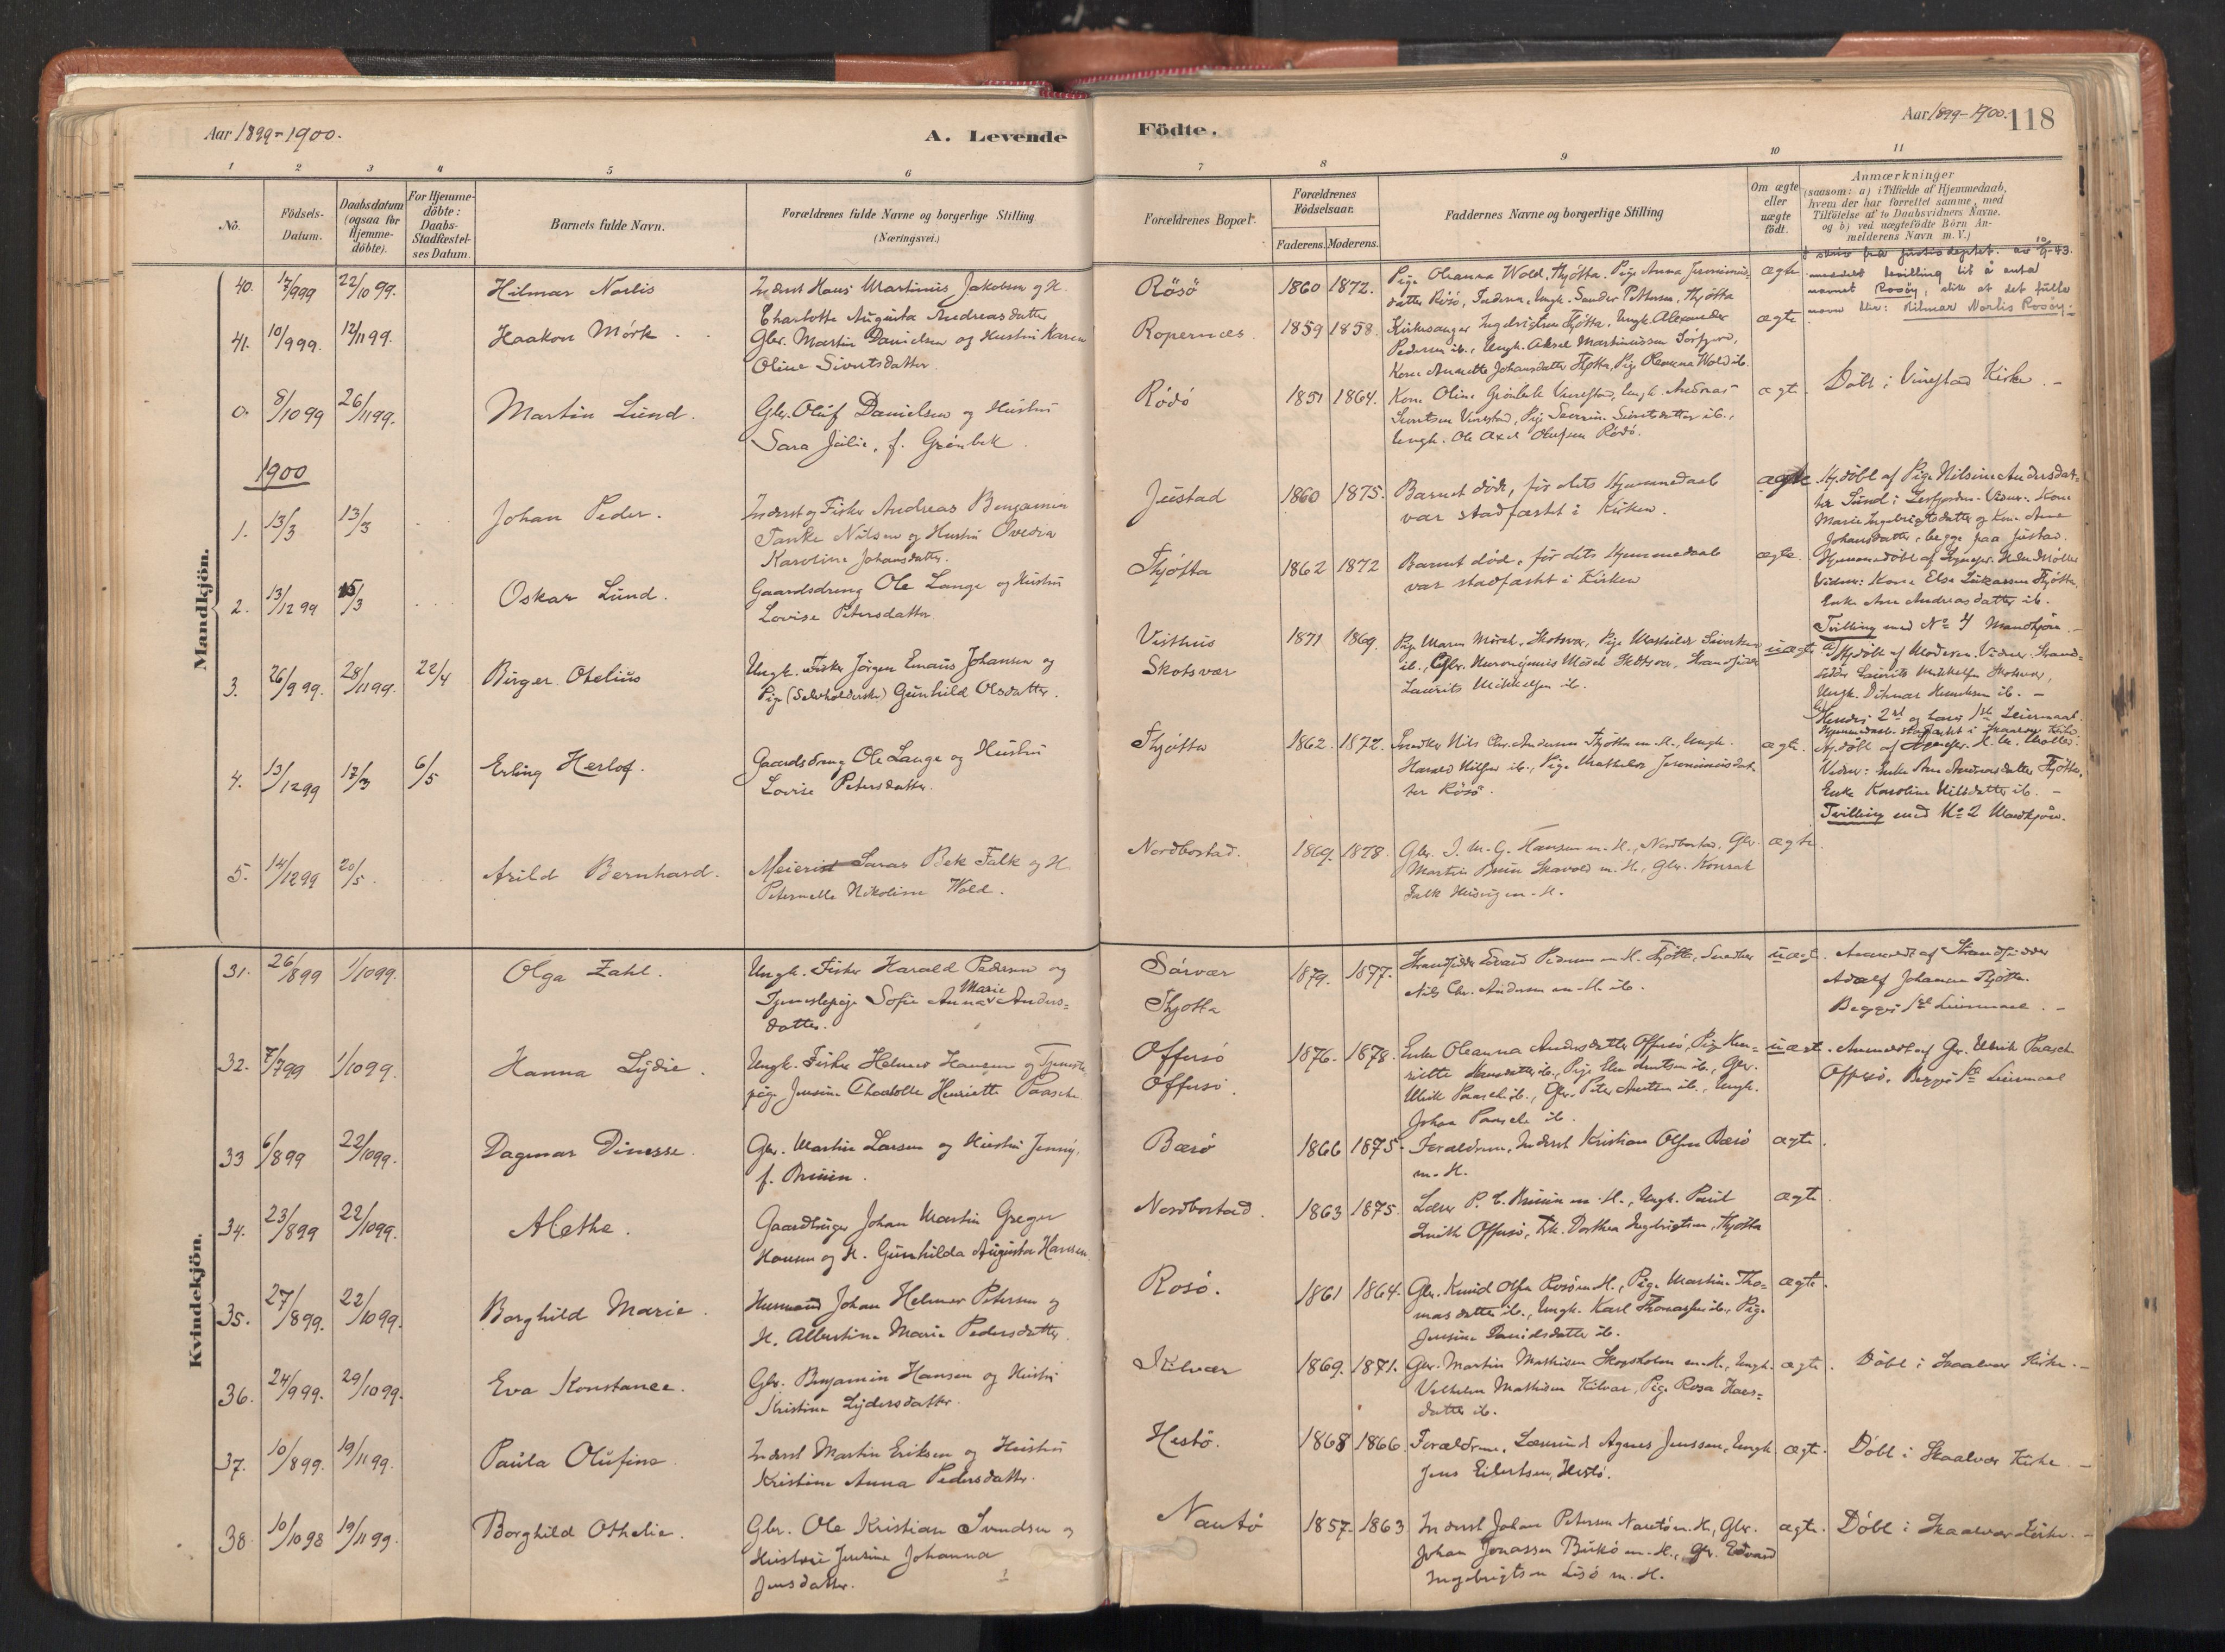 Aar 1899-1900.
A. Levende
Födte.
Aar 1899-1900.
118
1 2 3 4 5 6 7 8 9 10 11
No.
Födsels-
Datum.
Daabsdatum
(ogsaa for
Hjemme-
döbte).
For Hjemme-
döbte:
Daabs-
Stadfæstel-
ses Datum.
Barnets fulde Navn.
Forældrenes fulde Navne og borgerlige Stilling
(Næringsvei.)
Forældrenes Bopæl.
Forældrenes
Födselsaar.
Faderens. Moderens.
Faddernes Navne og borgerlige Stilling
Om ægte
eller
uægte
födt.
Anmærkninger
(saasom: a) i Tilfælde af Hjemmedaab,
hvem der har forrettet samme, med
Tilföielse af to Daabsvidners Navne.
og b) ved uægtefödte Börn An-
melderens Navn m. V.)
Mandkjön.
40. 17/9 99 22/10 99. Hilmar Norlis
Inderst Hans Martinus Jakobsen og H.
Charlotte Augusta Andreasdatter
Rösö 1860 1872.
Pige Oleanna Wold, Thjötta. Pige Anna Jeronimus-
datter Rösö, Faderen, Ungk. Sander Pettersen, Thjötta
ægte.
navnet Rosöy, slik at det fulle
navn blir: Hilmar Norlis Rosöy.
41. 10/9 99. 12/11 99. Haakon Mörk
Gbr. Martin Danielsen og Hustru Karen
Oline Sivertsdatter.
Ropernes 1859 1858.
Kirkesanger Ingebrigtsen Thjötta, Ungk. Alexander
Pedersen ib., Ungk. Aksel Martinussen Sörfjord,
Kone Annette Johansdatter Thjötta, Pige Oleanna Wold ib.
ægte
0. 8/10 99 26/11 99. Martin Lund.
Gbr. Oluf Danielsen og Hustru
Sara Julie, f. Grönbek.
Rödö 1851 1864.
Kone Oline Grönbek Vinestad, Ungk. Andreas
Sivertsen Vinestad, Pige Sivertsdatter ib.,
Ungk. Ole Axel Olufsen Rödö.
ægte. Döbt i Kirke. -
1900
1. 13/3 13/3 Johan Peder.
Inderst og Fisker Andreas Benjamin
Tanke Nilsen og Hustru Ovedia
Karoline Johansdatter.
Justad 1860 1875.
Barnet döde, för dets Hjemmedaab
var stadfæstet i Kirken.
ægte
Hj.döbt af Pige Nilsine Andersdat-
ter Sund i Leirfjorden. Vidner: Kone
Marie Ingebrigtsdatter og Kone Ane
Johansdatter, begge paa Justad.
2. 13/12 99 15/3 Oskar Lund.
Gaardsdreng Ole Lange og Hustru
Lovise Petersdatter
Thjötta 1862 1872
Barnet döde, för dets Hjemmedaab
var stadfæstet i Kirken
ægte.
Vidner: Kone Else Lukassen Thjötta,
Enke Ane Andreasdatter ib.
Tvilling med No 4 Mandkjön. -
3. 26/9 99. 28/11 99. 22/4 Birger Otelius
Ungk. Fisker Jörgen Emaus Johansen og
Pige (Selvholderske) Gunhild Olsdatter.
Visthus
Skotsvær
1871 1869.
Pige Maren Mörch Skotsvær, Pige Mathilde Sivertsen
ib., Gbr. Hieronymus Mörch Skotsvær, Strandsidder
Laurits Mikkelsen ib.
uægte
a) Hj.döbt af Moderen. Vidner: Strand-
sidder Laurits Mikkelsen Skotsvær,
Ungk. Ditmar Henriksen ib. -
4. 13/12 99 17/3 6/5 Erling Herlof.
Gaardsdreng Ole Lange og Hustru
Lovise Petersdatter.
Thjötta 1862. 1872.
Snedker Nils Chr. Andersen Thjötta m. H., Ungk.
Harald Nilsen ib., Pige Mathilde Jeronimusdat-
ter Rösö.
ægte.
Vidner: Enke Ane Andreasdatter Thjötta,
Enke Karoline Nilsdatter ib. -
Tvilling med No 2 Mandkjön.
5. 14/12 99 20/5. Arild Bernhard.
Meierist Lauras Bek Falk og H.
Peternelle Nikoline Wold.
Nordbostad. 1869. 1878.
Gbr. J. M. G. Hansen m. H., Nordbostad, Gbr.
Martin Bruun Skavold m. H., Gbr. Konrad
Falk m. H.
ægte.
Kvindekjön.
31. 26/8 99 1/10 99. Olga Zahl.
Ungk. Fisker Harald Pedersen og
Tjenestepige Sofie Anna Marie Anders-
datter.
Sörvær
Thjotta
1879. 1877.
Strandsidder Edvard Pedersen m. H. Thjötta, Snedker
Nils Chr. Andersen m. H. ib.
uægte.
Anmeldt af Strandsidder
Adolf Johansen Thjötta.
Begges 1ste Leiermaal. -
32. 7/7 99 1/10 99. Hanna Lydie.
Ungk. Fisker Helmer Hansen og Tjeneste-
pige Jensine Charlotte Henriette Paasche
Offersö
Offersö.
1876. 1878.
Enke Oleanna Andersdatter Offersö, Pige Hen-
riette Hansdatter ib., Pige Elen Arntsen ib., Gbr.
Ulrik Paasche ib., Gbr. Peter Arntsen ib., Ungk.
Johan Paasche ib.
uægte.
Anmeldt af Gbr. Ulrik Paasche
Offersö. Begges 1ste Leiermaal
33 6/8 99 22/10 99. Dagmar Dinesse.
Gbr. Martin Larsen og Hustru Jenny,
f. Bruun.
Bærö 1866 1875.
Forældrene, Inderst Kristian Olsen Bærö
m. H.
ægte.
34. 23/8 99 22/10 99. Alethe.
Gaardbruger Johan Martin Greger
Hansen og H. Gunhilda Augusta Hansen
Nordbostad. 1863 1875.
Lærer P. C. Bruun m. H., Ungk. Paul
Offersö, Frk. Dorthea Ingebrigtsen, Thjötta
ægte.
35. 27/8 99. 22/10 99. Borghild Marie.
Husmand Johan Helmer Petersen og
H. Albertine Marie Pedersdatter.
Rosö. 1861 1864.
Gbr. Knud Olsen Rosö m. H., Pige Martine Tho-
masdatter ib., Ungk. Karl Thomassen ib., Pige
Jensine Danielsdatter ib.
ægte.
36. 24/9 99. 29/10 99. Eva Konstance.
Gbr. Benjamin Hansen og Hustru
Kristine Lydersdatter.
Kilvær 1869. 1871.
Gbr. Martin Mathisen Skogsholm m. H., Ungk.
Vilhelm Mathisen Kilvær, Pige Rosa Hans-
datter ib.
ægte. Döbt i Skaalvær Kirke. -
37. 10/8 99. 19/11 99. Paula Olufine
Inderst Martin Eriksen og Hustru
Kristine Anna Pedersdatter.
Hestö. 1868 1866.
Forældrene, Agnes Jenssen, Ungk.
Jens Eilertsen, Hestö.
ægte. Döbt i Skaalvær Kirke. -
38. 10/10 98 19/11 99. Borghild Othelie.
Gbr. Ole Kristian Svendsen og
Hustru Jensine Johanna
Jensdatter.
Nautö 1857. 1863
Inderst Johan Petersen Nautö m. H., Gbr.
Johan Jonassen Bukö m. H., Gbr. Edvard
Ingebrigtsen Lisö m. H.
ægte. Döbt i Skaalvær Kirke. -